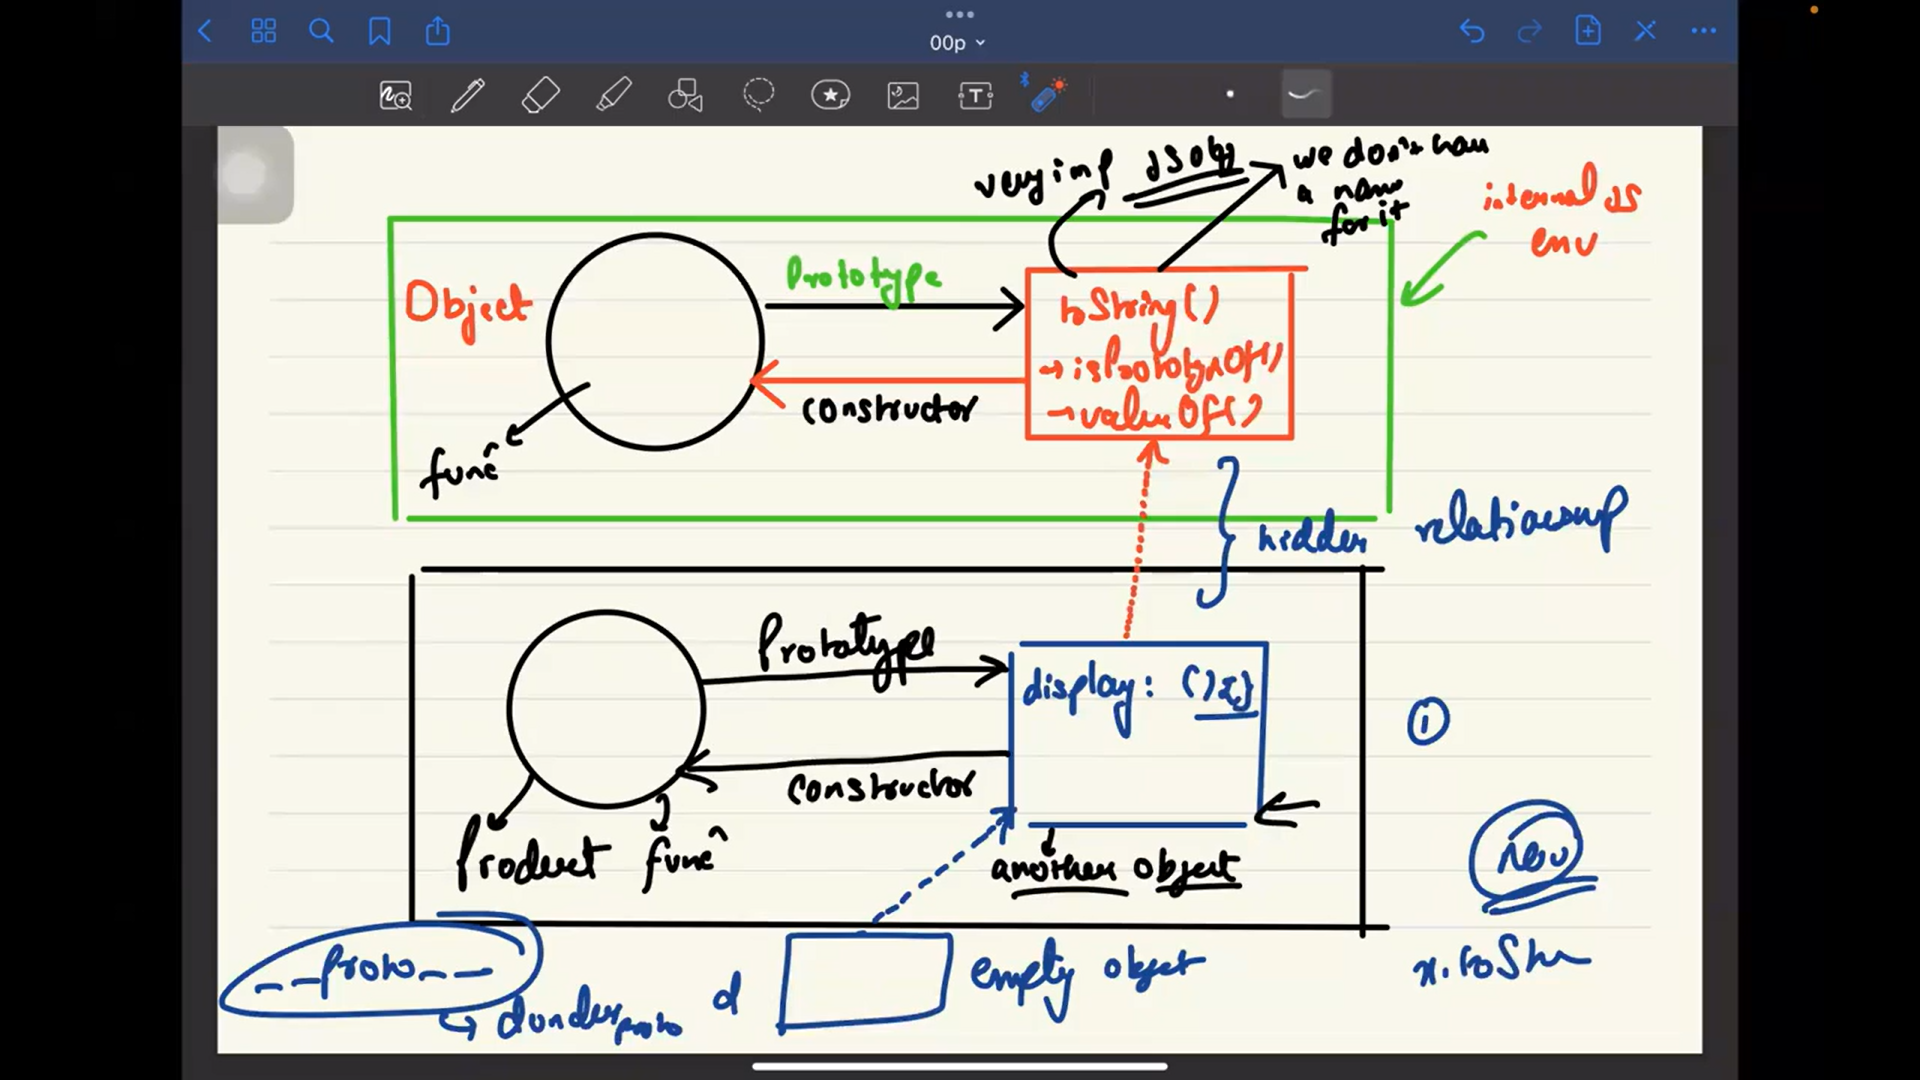 00p
very imp JS obj
we don't have
a name
for it
internal JS
env
Object
Prototype
toString()
→ isPrototypeOf()
→ valueOf()
constructor
func
hidden
relationship
Prototype
display: (){}
constructor
1
Product func
another object
new
__proto__
dunder proto
empty object
x.toStr